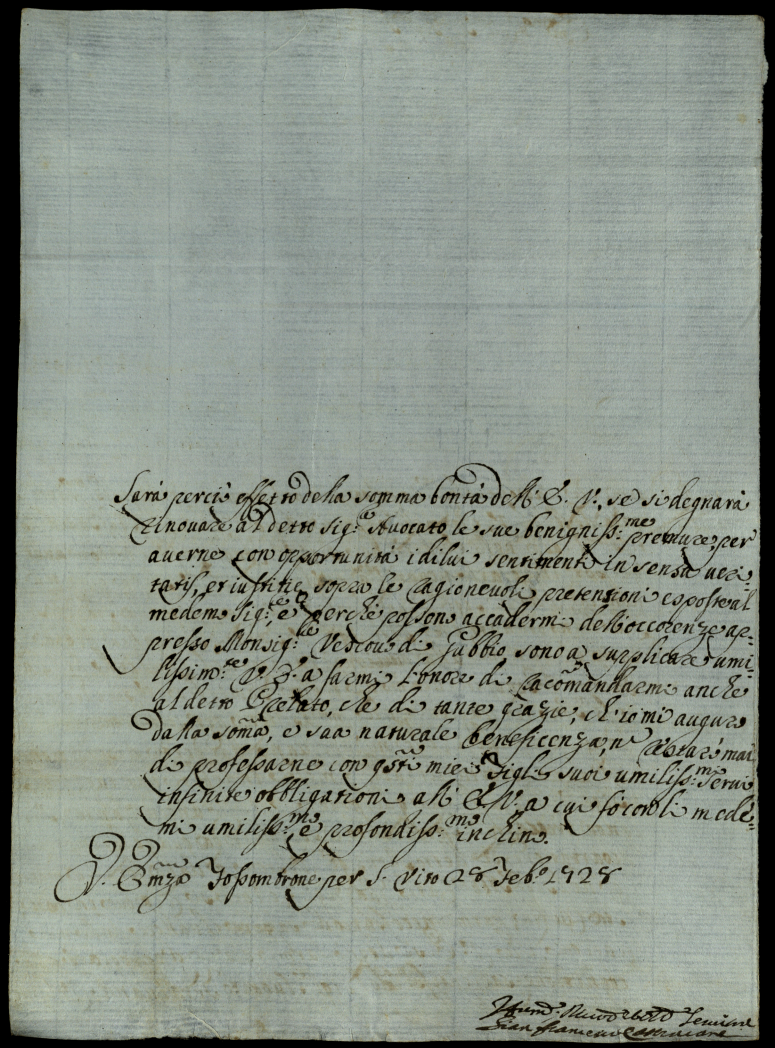 Sarà perciò effetto della somma bontà dell' E. V., se si degnarà
rinovare al detto Sig.re Avocato le sue benigniss.me premure, per
averne con opportunità i di lui sentimenti in senza veri-
tatis, et iustitie, sopra le ragionevoli pretensioni esposte al
medem Sig.re, e perche possono accadermi dell'occorenze ap-
presso Monsig.re Vescovo di Gubbio sono a supplicare umi-
lissim.te V. E. a farmi l'onore di racõmandarmi anche
al detto Prelato, che di tante grazie, ch'io mi auguro
dalla som̃a, e sua naturale beneficenza, n. restarò mai
di professarne con gsti miei Figli suoi umiliss.mi servi
infinite obbligationi all' E. V. a cui fo con li mede-
mi umiliss.mo, e profondiss.mo inchino.
D. V. Em̃za Fossombrone per S. Vito 28 Feb.o 1728
Hum.o Servitore
Gian Francesco